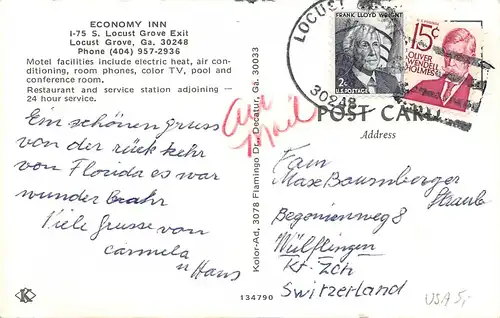 ECONOMY INN
I-75 S. Locust Grove Exit
Locust Grove, Ga. 30248
Phone (404) 957-2936
Motel facilities include electric heat, air con-
ditioning, room phones, color TV, pool and
conference room.
Restaurant and service station adjoining —
24 hour service.
Ein schönen gruss
von der rück kehr
von Florida es war
wunder
Viele Grusse von
Carmela
u Hans
Air
Mail
Kolor-Ad, 3078 Flamingo Dr., Decatur, Ga. 30033
134790
K
LOCUST
30248
FRANK LLOYD WRIGHT
2c
U.S. POSTAGE
15c
OLIVER
WENDELL
HOLMES
POST CARD
Address
Fam
Max
Straub
Begonienweg 8
Wülflingen
Kt. Zch
Switzerland
USA 5,-